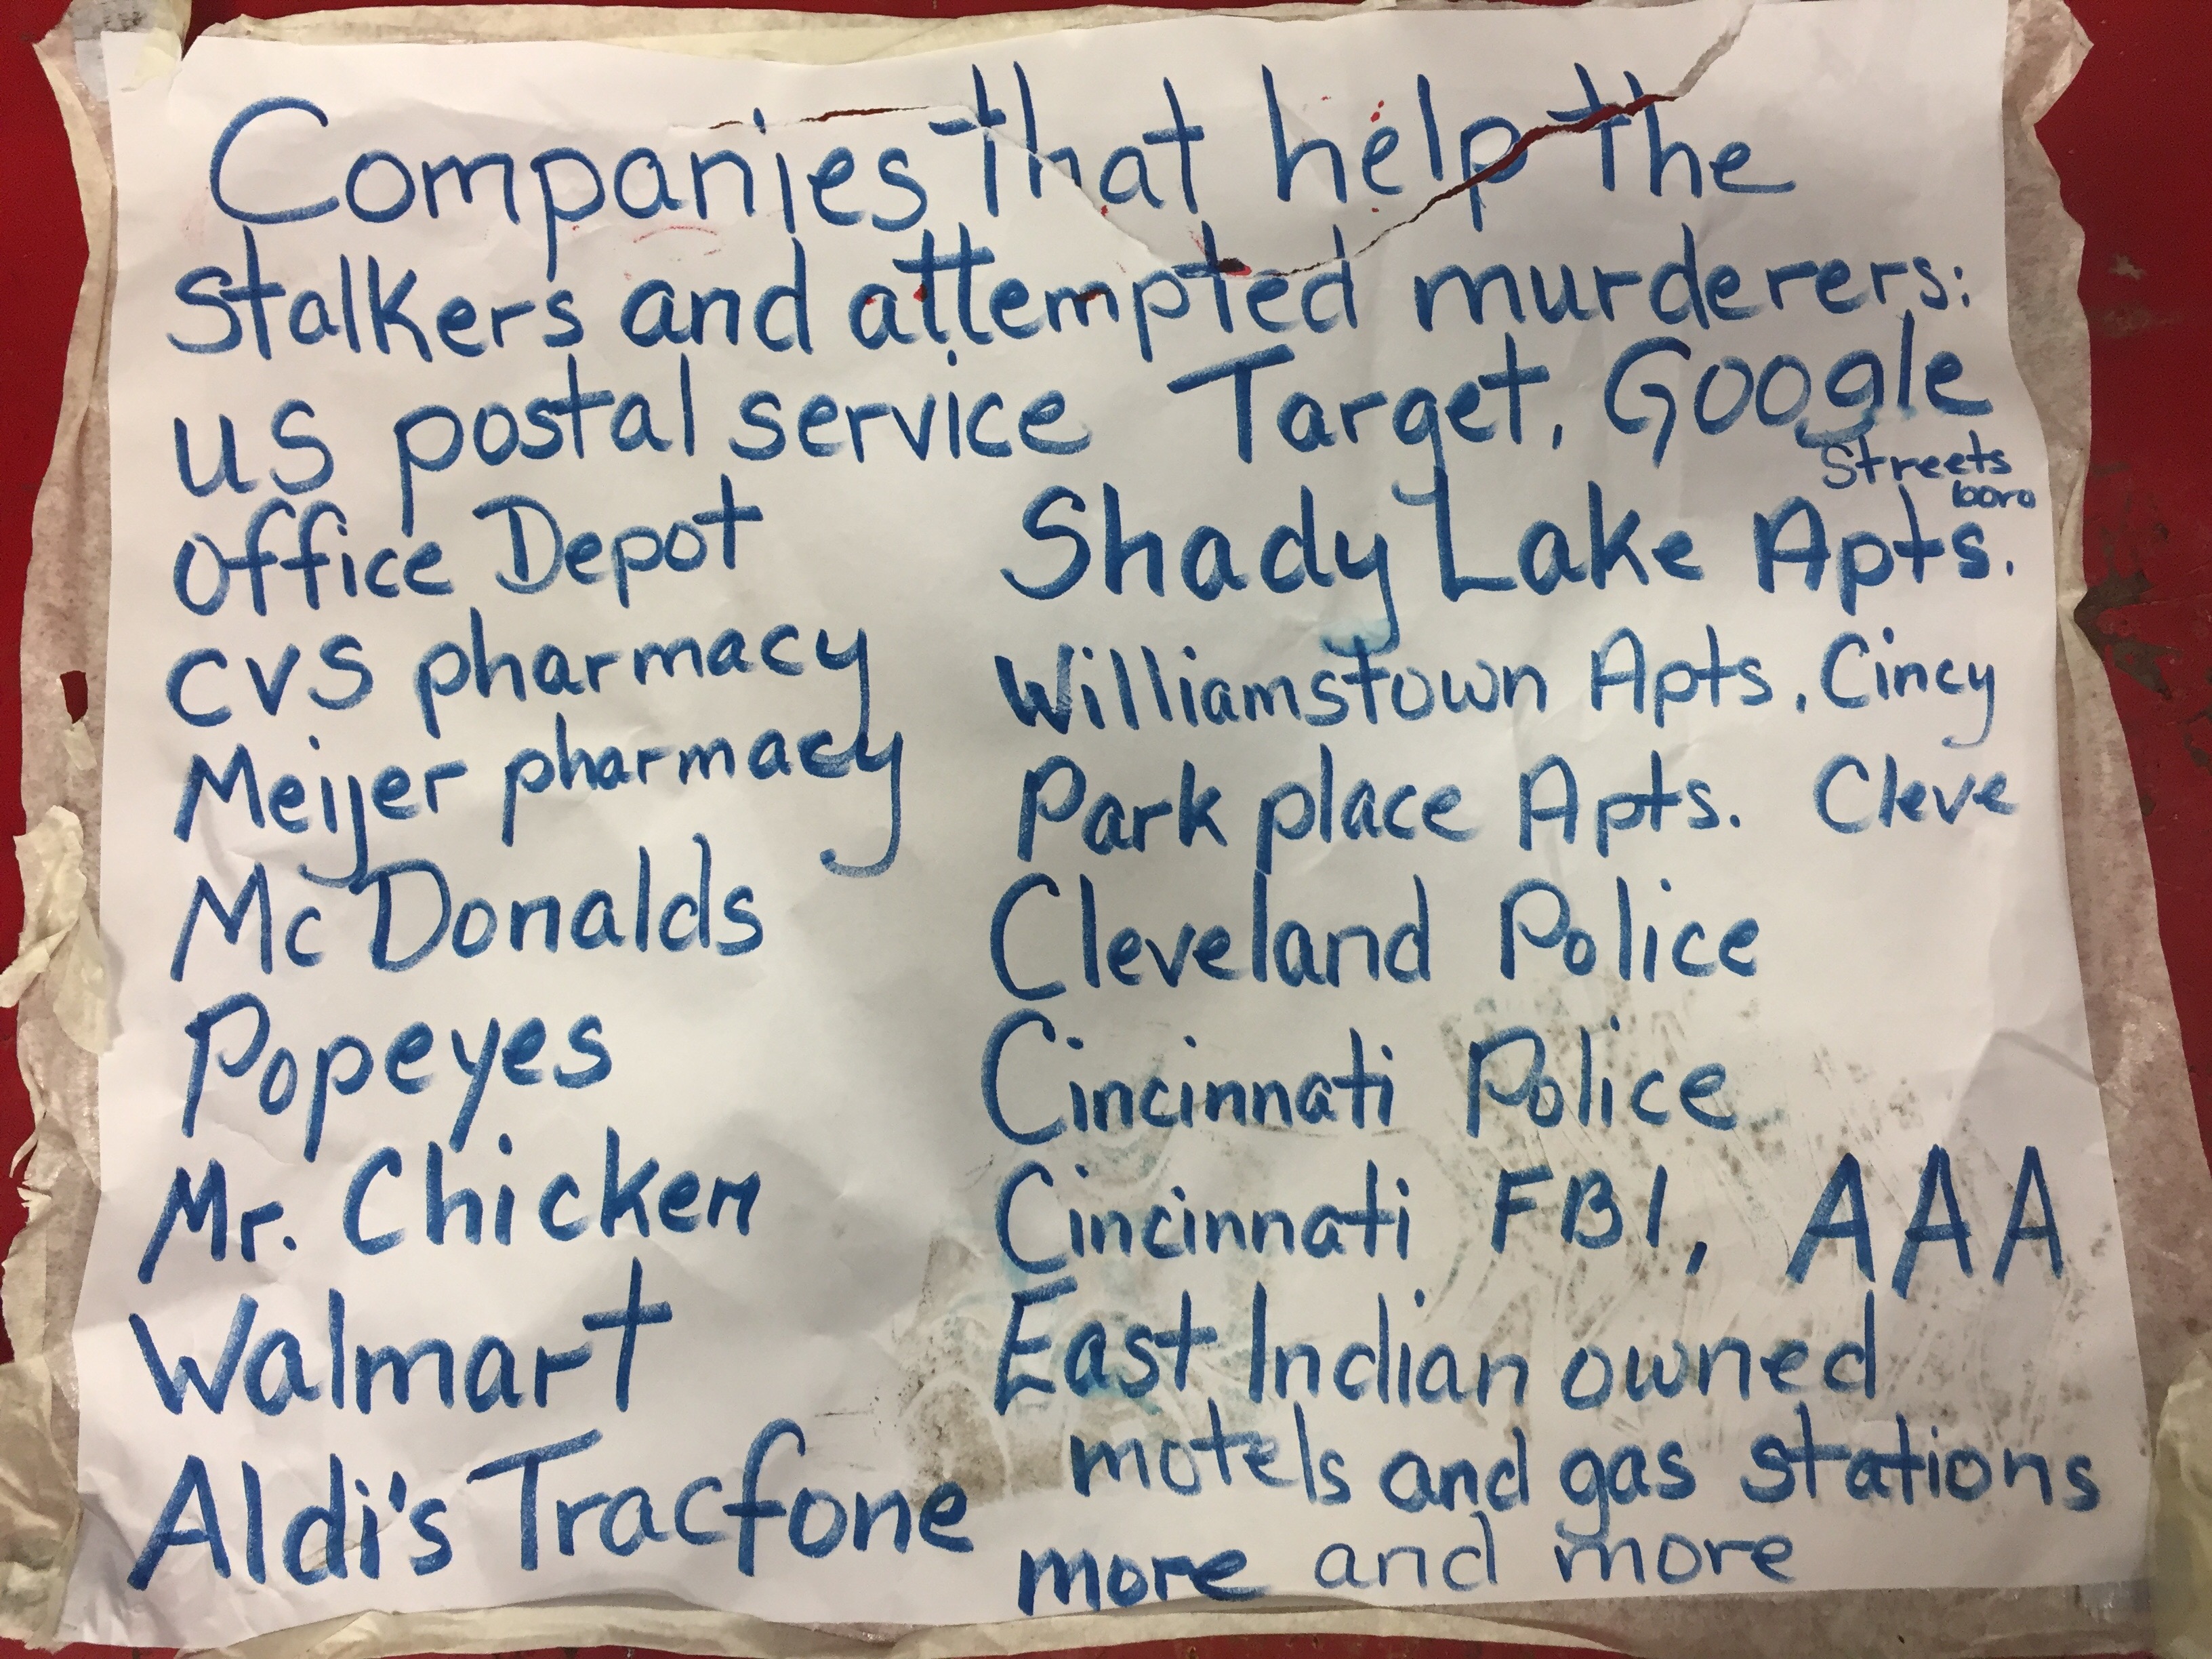 Companies that help the
stalkers and attempted murderers:
us postal service Target, Google
Office Depot
CVS pharmacy
Meijer pharmacy
Mc Donalds
Popeyes
Mr. Chicken
Walmart
Aldi's Tracfone
Streets
boro
Shady Lake Apts.
Williamstown Apts, Cincy
Park place Apts. Cleve
Cleveland Police
Cincinnati Police
Cincinnati FBI, AAA
East Indian owned
motels and gas stations
more and more